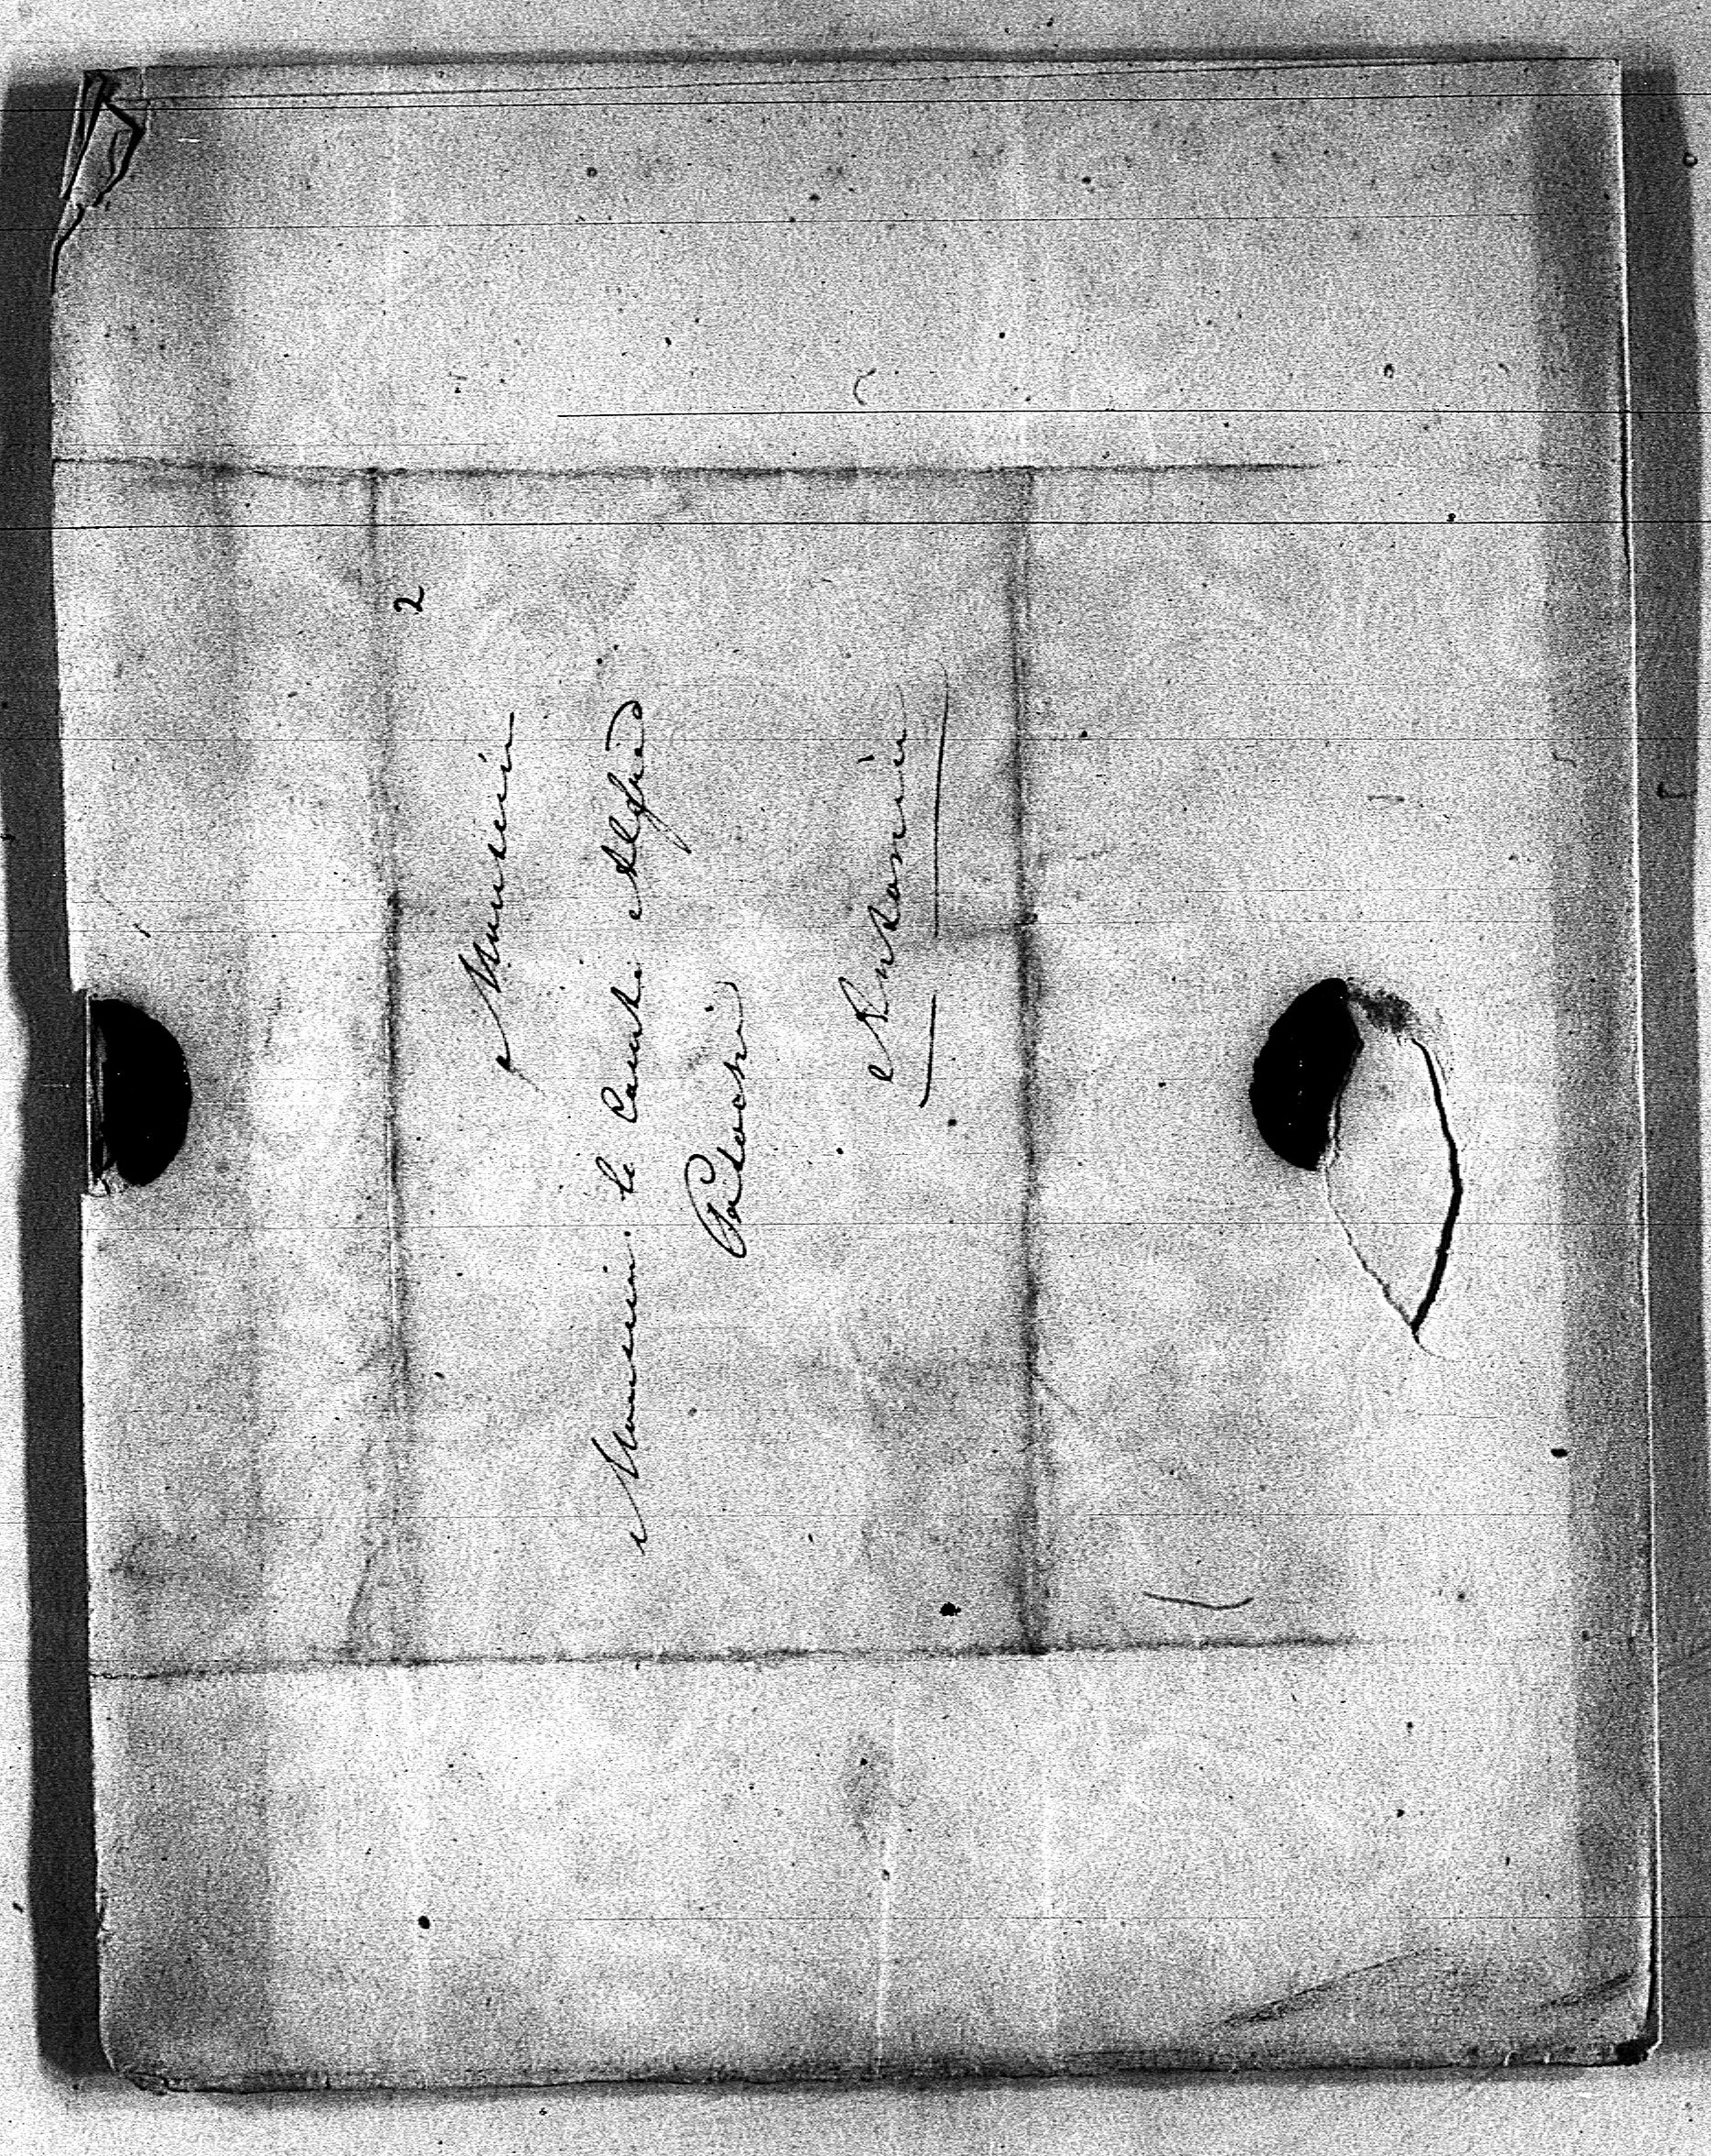 2
Monsieur
Monsieur le Comte Alfred
Potocki
Antonin